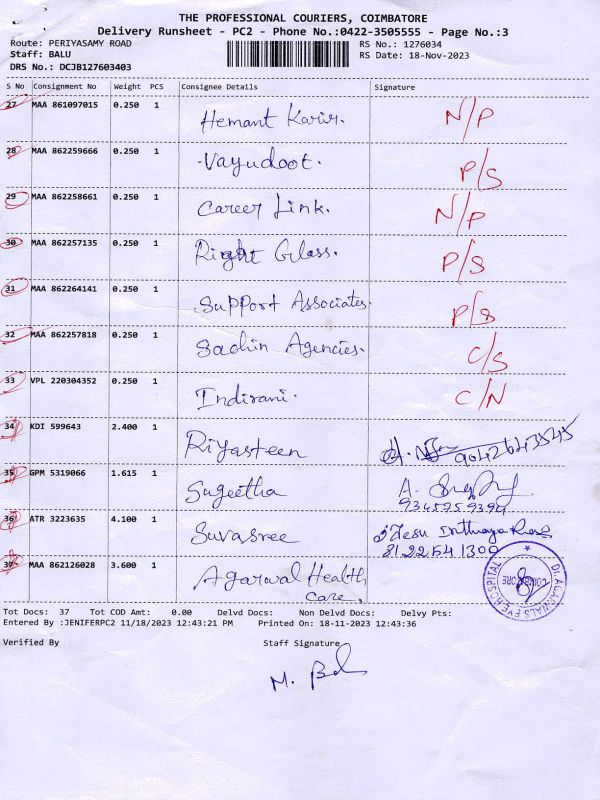 THE PROFESSIONAL COURIERS, COIMBATORE
Delivery Runsheet - PC2 - Phone No.:0422-3505555 - Page No.:3
Route: PERIYASAMY ROAD RS No.: 1276034
Staff: BALU RS Date: 18-Nov-2023
DRS No.: DCJB127603403
S No Consignment No Weight PCS Consignee Details Signature
27 MAA 861097015 0.250 1 Hemant Karir. N/P
28 MAA 862259666 0.250 1 Vayudoot. P/S
29 MAA 862258661 0.250 1 Career Link. N/P
30 MAA 862257135 0.250 1 Right Glass. P/S
31 MAA 862264141 0.250 1 Support Associates. P/S
32 MAA 862257818 0.250 1 Sachin Agencies. C/S
33 VPL 220304352 0.250 1 Indirani. C/N
34 KDI 599643 2.400 1 Riyasteen
35 GPM 5319066 1.615 1 Sugeetha A.
9345759394
36 ATR 3223635 4.100 1 Suvasree
8122541300
37 MAA 862126028 3.600 1 Agarwal Health
Care.
DR. AGARWALS EYE HOSPITAL
COIMBATORE
Tot Docs: 37 Tot COD Amt: 0.00 Delvd Docs: Non Delvd Docs: Delvy Pts:
Entered By :JENIFERPC2 11/18/2023 12:43:21 PM Printed On: 18-11-2023 12:43:36
Verified By Staff Signature
M.